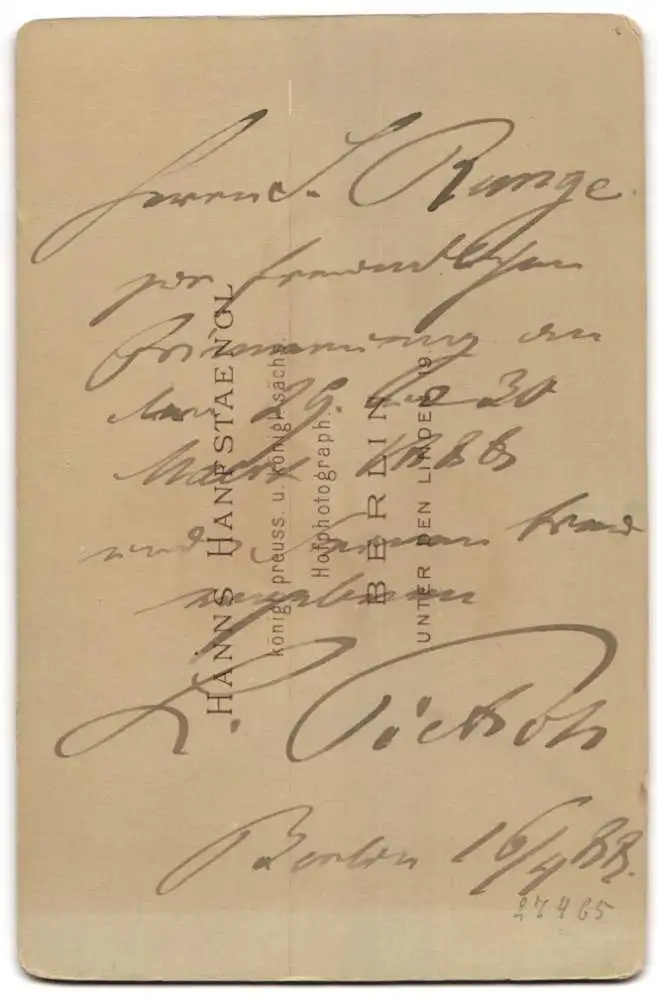 Herrn L. Runge
zur freundlichen
Erinnerung an
den 29. und 30
März 1888
und Seinen treu
ergebenen
L. Pietsch
Berlin 16/4 88.
27465
HANNS HANFSTAENGL
königl. preuss. u. königl. sächs.
Hofphotograph.
BERLIN
UNTER DEN LINDEN 19.